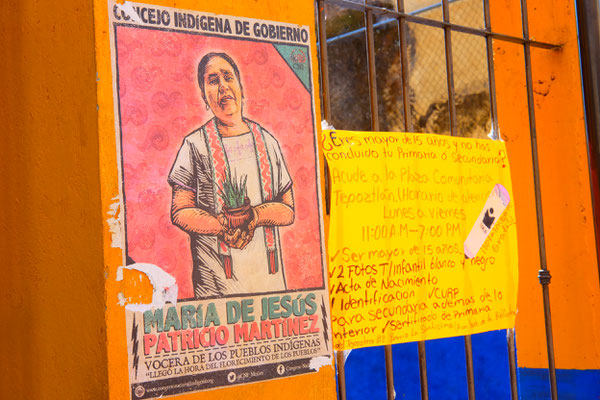 CONCEJO INDÍGENA DE GOBIERNO
MARÍA DE JESÚS
PATRICIO MARTÍNEZ
VOCERA DE LOS PUEBLOS INDÍGENAS
"LLEGÓ LA HORA DEL FLORECIMIENTO DE LOS PUEBLOS"
¿Eres mayor de 15 años y no has
concluido tu Primaria ó Secundaria?
Acude a la Plaza Comunitaria
Tepoztlán. (Horario de
Lunes a Viernes
11:00 AM-7:00 PM
✓Ser mayor de 15 años.
✓2 Fotos T/Infantil blanco y negro
✓Acta de Nacimiento
✓Identificación ✓CURP
Para secundaria además de lo
anterior /Sertificado de Primaria